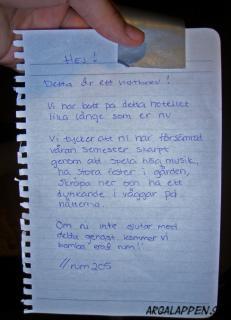 HEJ!
Detta är ett klottbrev!
Vi har bott på detta hotellet
lika länge som er nu
Vi tycker att ni har försämrat
våran semester skarpt
genom att spela hög musik,
ha stora fester i gården,
skräpa ner och ha ett
dunkande i väggar på
nätterna.
Om ni inte slutar med
detta genast kommer vi
bomba erat rum!
//rum 205
ARGALAPPEN.S